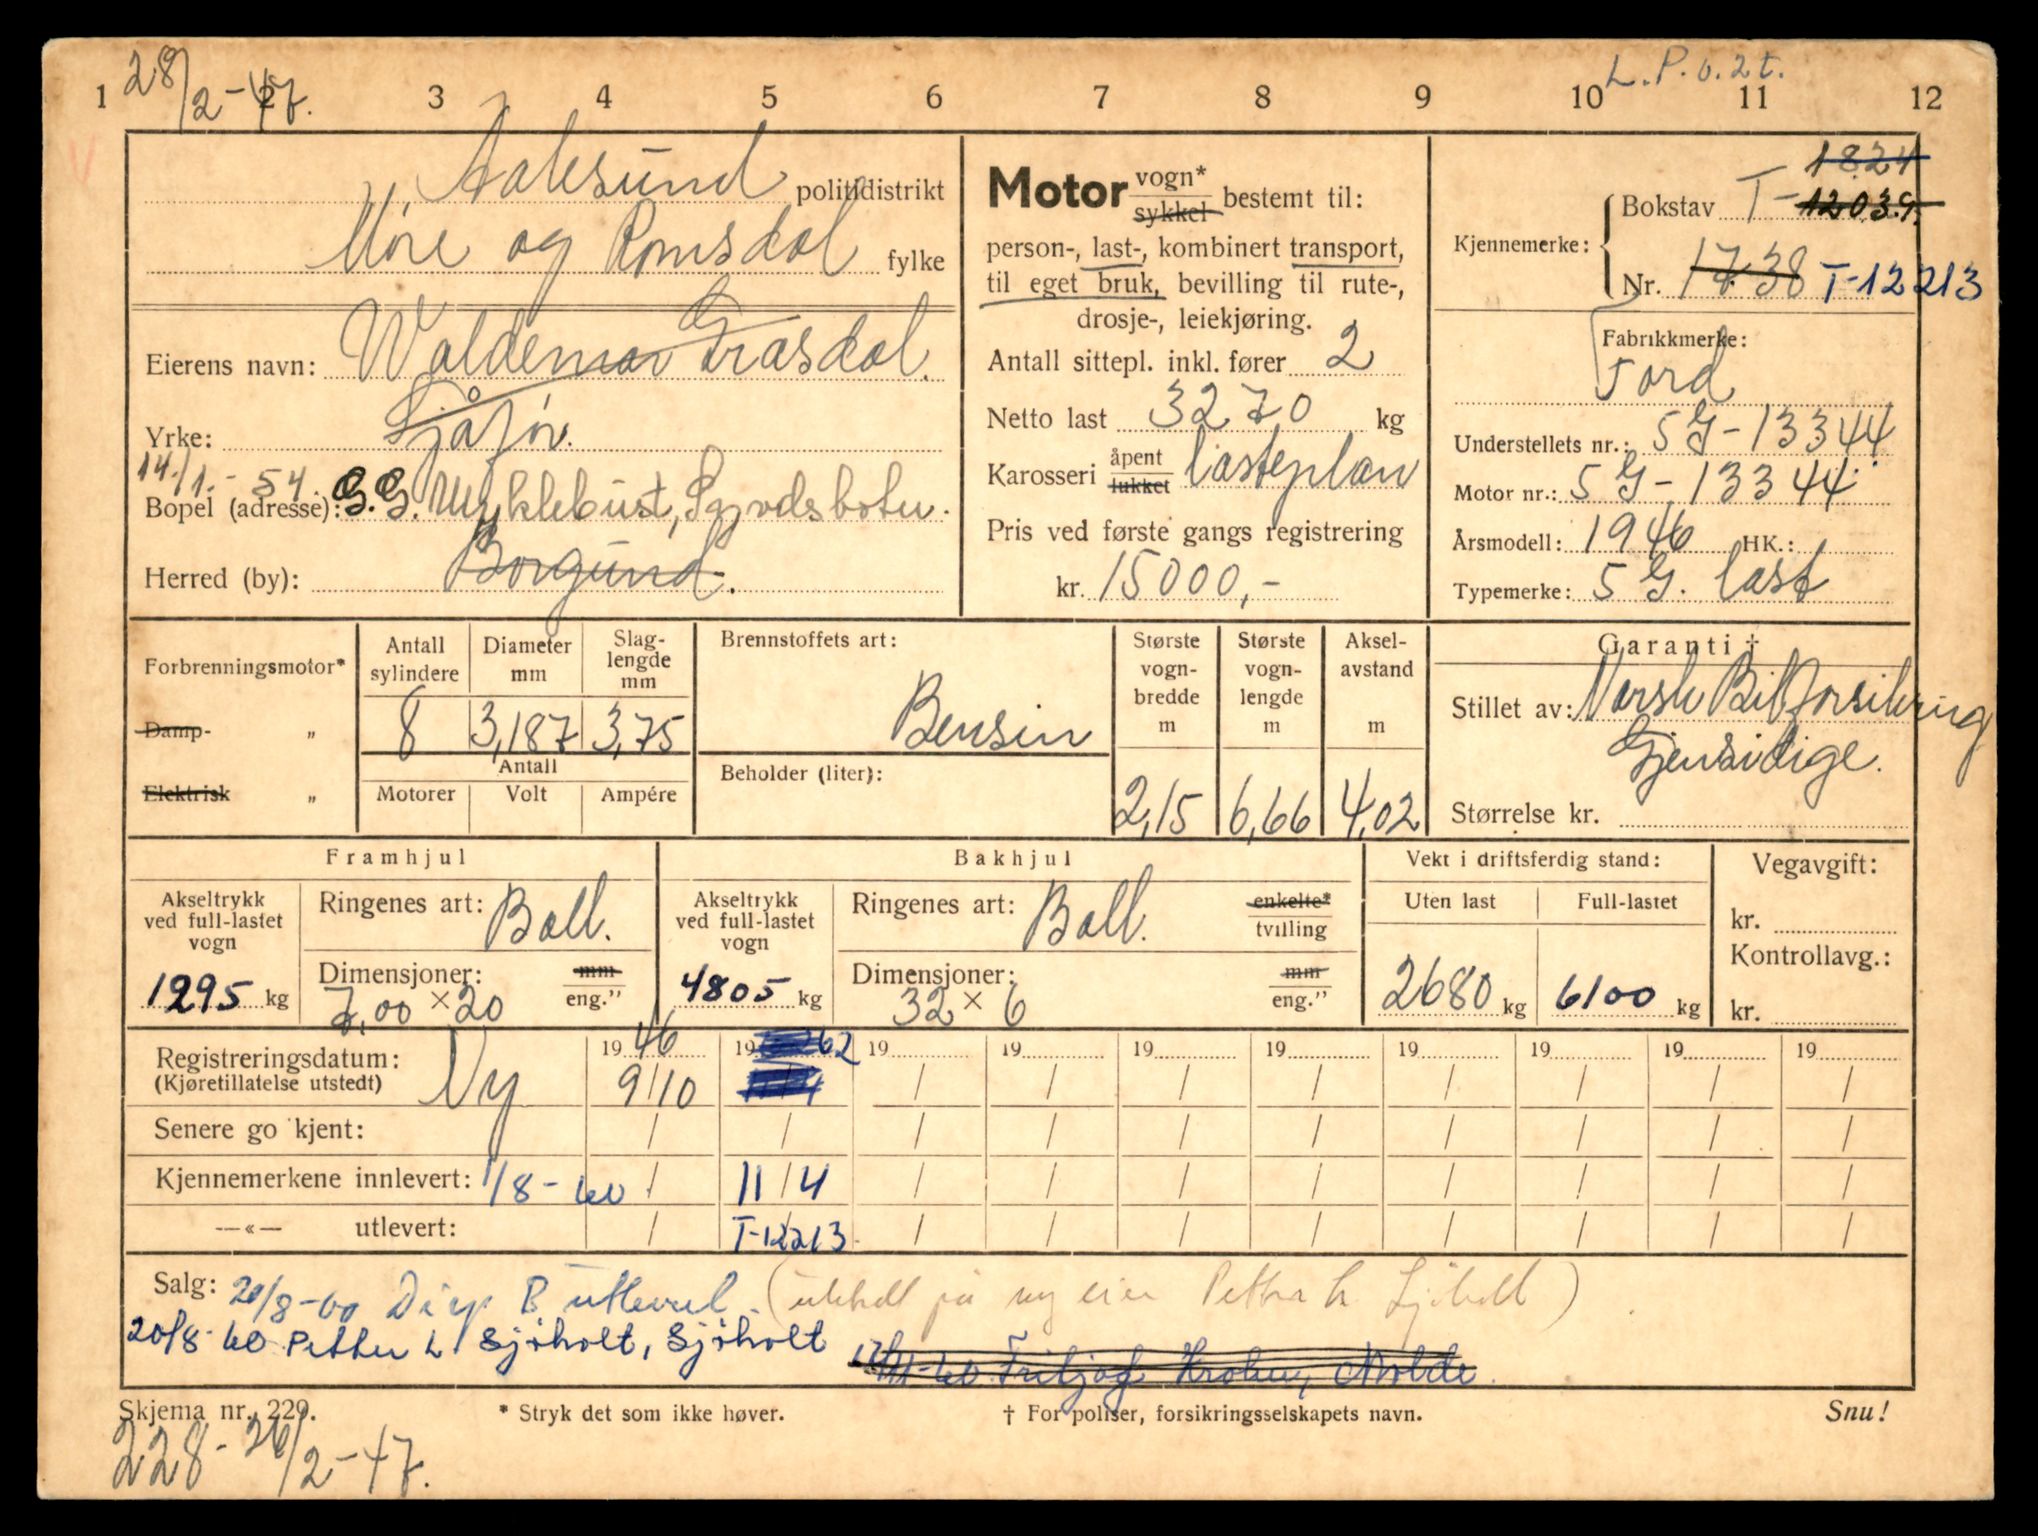 28/2-47.
L.P.o.2t.
1 2 3 4 5 6 7 8 9 10 11 12
Aalesund politidistrikt
Møre og Romsdal fylke
Eierens navn: Waldemar Grasdal.
Yrke: Sjåfør.
14/1.-54. G.G. Myklebust,
Bopel (adresse):
Herred (by): Borgund.
Motor vogn* sykkel bestemt til:
person-, last-, kombinert transport,
til eget bruk, bevilling til rute-,
drosje-, leiekjøring.
Antall sittepl. inkl. fører 2
Netto last 3270 kg
Karosseri åpent lukket lasteplan
Pris ved første gangs registrering
kr. 15000,-
1824
Kjennemerke: Bokstav T-12039.
Nr. 1738 T-12213
Fabrikkmerke:
Ford
Understellets nr.: 5G-13344
Motor nr.: 5G-13344
Årsmodell: 1946 HK.:
Typemerke: 5G. last
Forbrenningsmotor*
Damp- „
Elektrisk „
Antall sylindere 8
Diameter mm 3,187
Slaglengde mm 3,75
Antall
Motorer Volt Ampére
Brennstoffets art:
Bensin
Beholder (liter):
Største vogn-bredde m 2,15
Største vogn-lengde m 6,66
Aksel-avstand m 4,02
Garanti †
Stillet av: Norsk Bilforsikring
Gjensidige.
Størrelse kr.
Framhjul
Akseltrykk ved full-lastet vogn
1295 kg
Ringenes art: Ball.
Dimensjoner: mm
7,00 × 20 eng.”
Bakhjul
Akseltrykk ved full-lastet vogn
4805 kg
Ringenes art: Ball. enkelte* tvilling
Dimensjoner: mm
32 × 6 eng.”
Vekt i driftsferdig stand:
Uten last Full-lastet
2680 kg 6100 kg
Vegavgift:
kr.
Kontrollavg.:
kr.
Registreringsdatum: Ny 19 46 19 62 19 19 19 19 19 19 19 19
(Kjøretillatelse utstedt) 9/10 / / / / / / / /
Senere go kjent: / / / / / / / / / /
Kjennemerkene innlevert: 1/8-60 / 11/4 / / / / / / / /
—«— utlevert: / T-12213 / / / / / / / /
Salg: 20/8-60 B utlevert. ( på ny eier Petter L. Sjøholt)
20/8-60 Petter L. Sjøholt, Sjøholt -60 Fritjof Krohn, Molde
Skjema nr. 229. * Stryk det som ikke høver. † For poliser, forsikringsselskapets navn. Snu!
228-26/2-47.